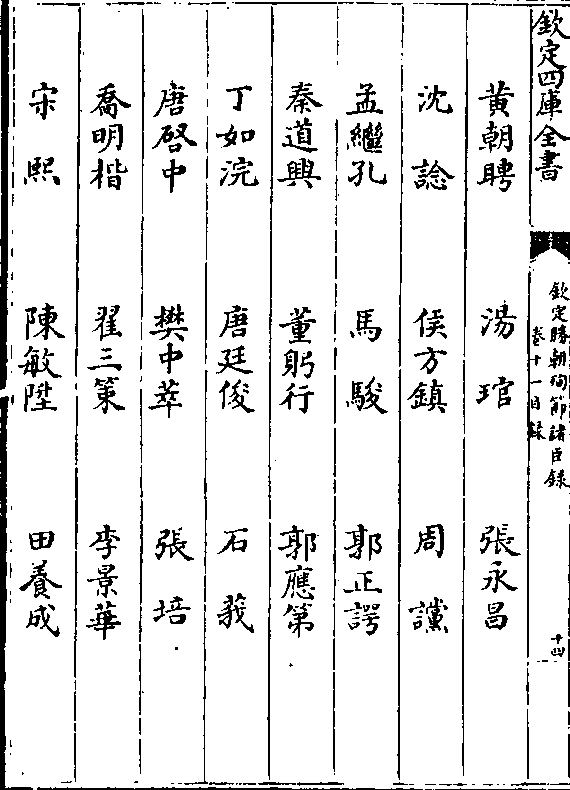 欽定四庫全書
欽定勝朝殉節諸臣錄
卷十一目錄
十四
黄朝聘 湯琯 張永昌
沈諗 侯方鎮 周讜
孟繼孔 馬駿 郭正諤
秦道興 董躬行 郭應第
丁如浣 唐廷俊 石莪
唐啓中 樊中萃 張培
喬明楷 翟三策 李景華
宋熙 陳敏陞 田養成